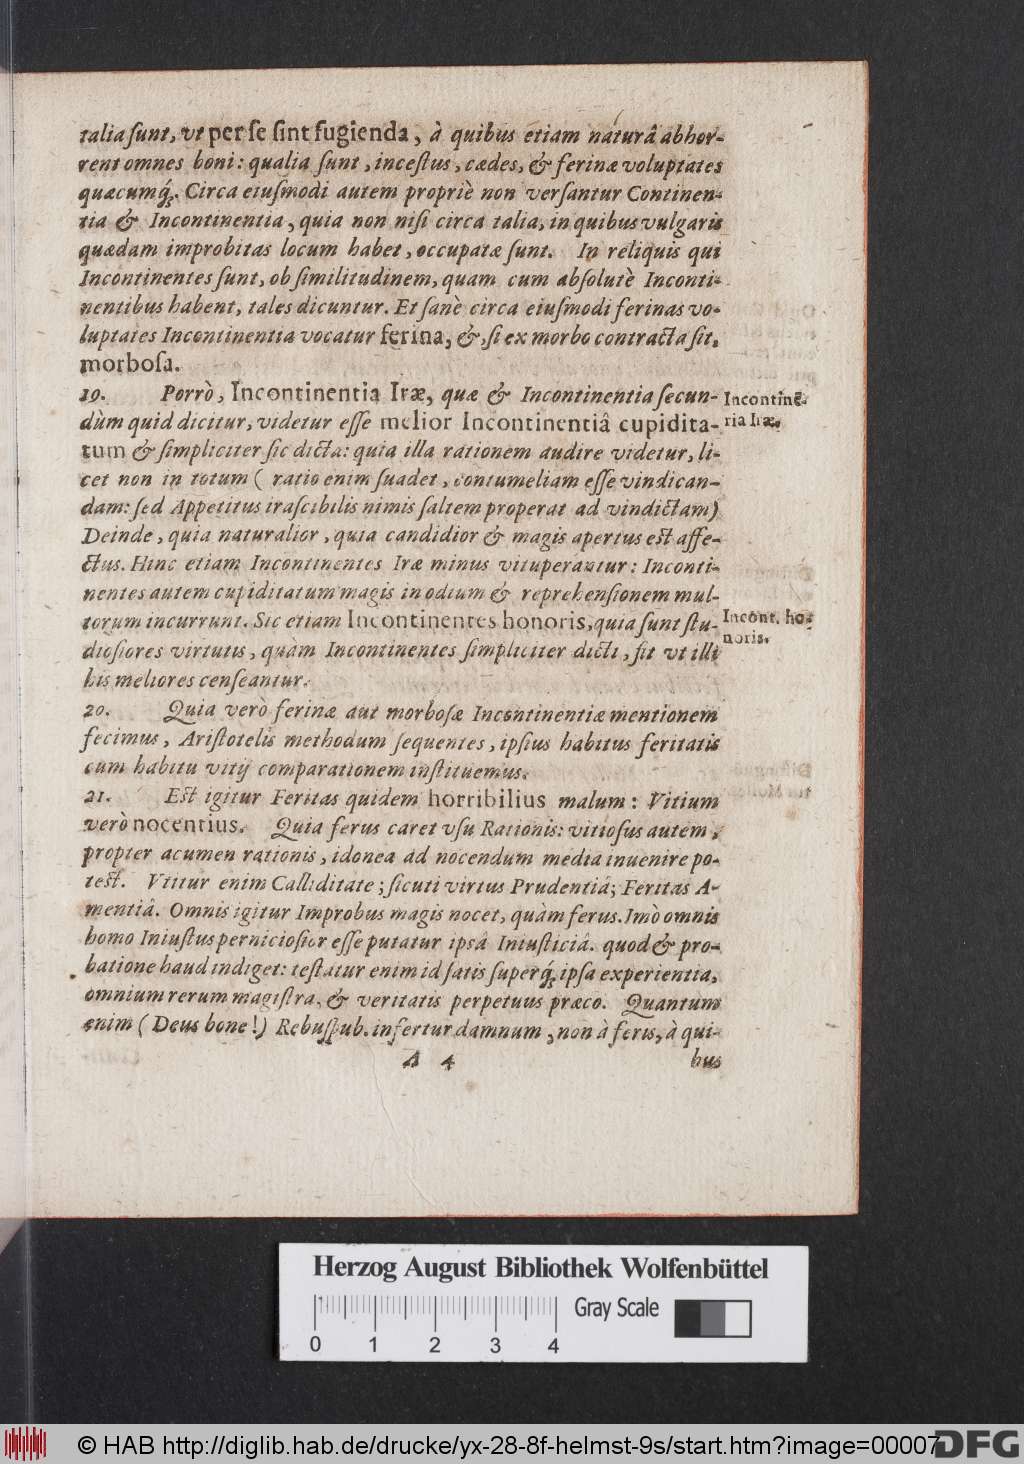 talia sunt, vt per se sint fugienda, à quibus etiam naturâ abhor-
rent omnes boni: qualia sunt, incestus, cædes, & ferinæ voluptates
quæcumq́;. Circa eiusmodi autem propriè non versantur Continen-
tia & Incontinentia, quia non nisi circa talia, in quibus vulgaris
quædam improbitas locum habet, occupatæ sunt. In reliquis qui
Incontinentes sunt, ob similitudinem, quam cum absolutè Inconti-
nentibus habent, tales dicuntur. Et sanè circa eiusmodi ferinas vo-
luptates Incontinentia vocatur ferina, &, si ex morbo contracta sit,
morbosa.
19. Porrò, Incontinentia Iræ, quæ & Incontinentia secun-
dùm quid dicitur, videtur esse melior Incontinentiâ cupidita-
tum & simpliciter sic dicta: quia illa rationem audire videtur, li-
cet non in totum ( ratio enim suadet, contumeliam esse vindican-
dam: sed Appetitus irascibilis nimis saltem properat ad vindictam)
Deinde, quia naturalior, quia candidior & magis apertus est affe-
ctus. Hinc etiam Incontinentes Iræ minus vituperantur: Inconti-
nentes autem cupiditatum magis in odium & reprehensionem mul-
torum incurrunt. Sic etiam Incontinentes honoris, quia sunt stu-
diosiores virtutis, quàm Incontinentes simpliciter dicti, fit vt illi
his meliores censeantur.
Incontinẽ-
tia Iræ.
Incont. ho-
noris.
20. Quia verò ferinæ aut morbosæ Incontinentiæ mentionem
fecimus, Aristotelis methodum sequentes, ipsius habitus feritatis
cum habitu vitij comparationem instituemus.
21. Est igitur Feritas quidem horribilius malum: Vitium
verò nocentius. Quia ferus caret vsu Rationis: vitiosus autem,
propter acumen rationis, idonea ad nocendum media inuenire po-
test. Vtitur enim Calliditate; sicuti virtus Prudentiâ; Feritas A-
mentiâ. Omnis igitur Improbus magis nocet, quàm ferus. Imò omnis
homo Iniustus perniciosior esse putatur ipsâ Iniusticiâ. quod & pro-
batione haud indiget: testatur enim id satis superq́; ipsa experientia,
omnium rerum magistra, & veritatis perpetuus præco. Quantum
enim ( Deus bone!) Rebuspub. infertur damnum, non à feris, à qui-
A 4 bus
Herzog August Bibliothek Wolfenbüttel
Gray Scale
0 1 2 3 4
© HAB http://diglib.hab.de/drucke/yx-28-8f-helmst-9s/start.htm?image=00007
DFG